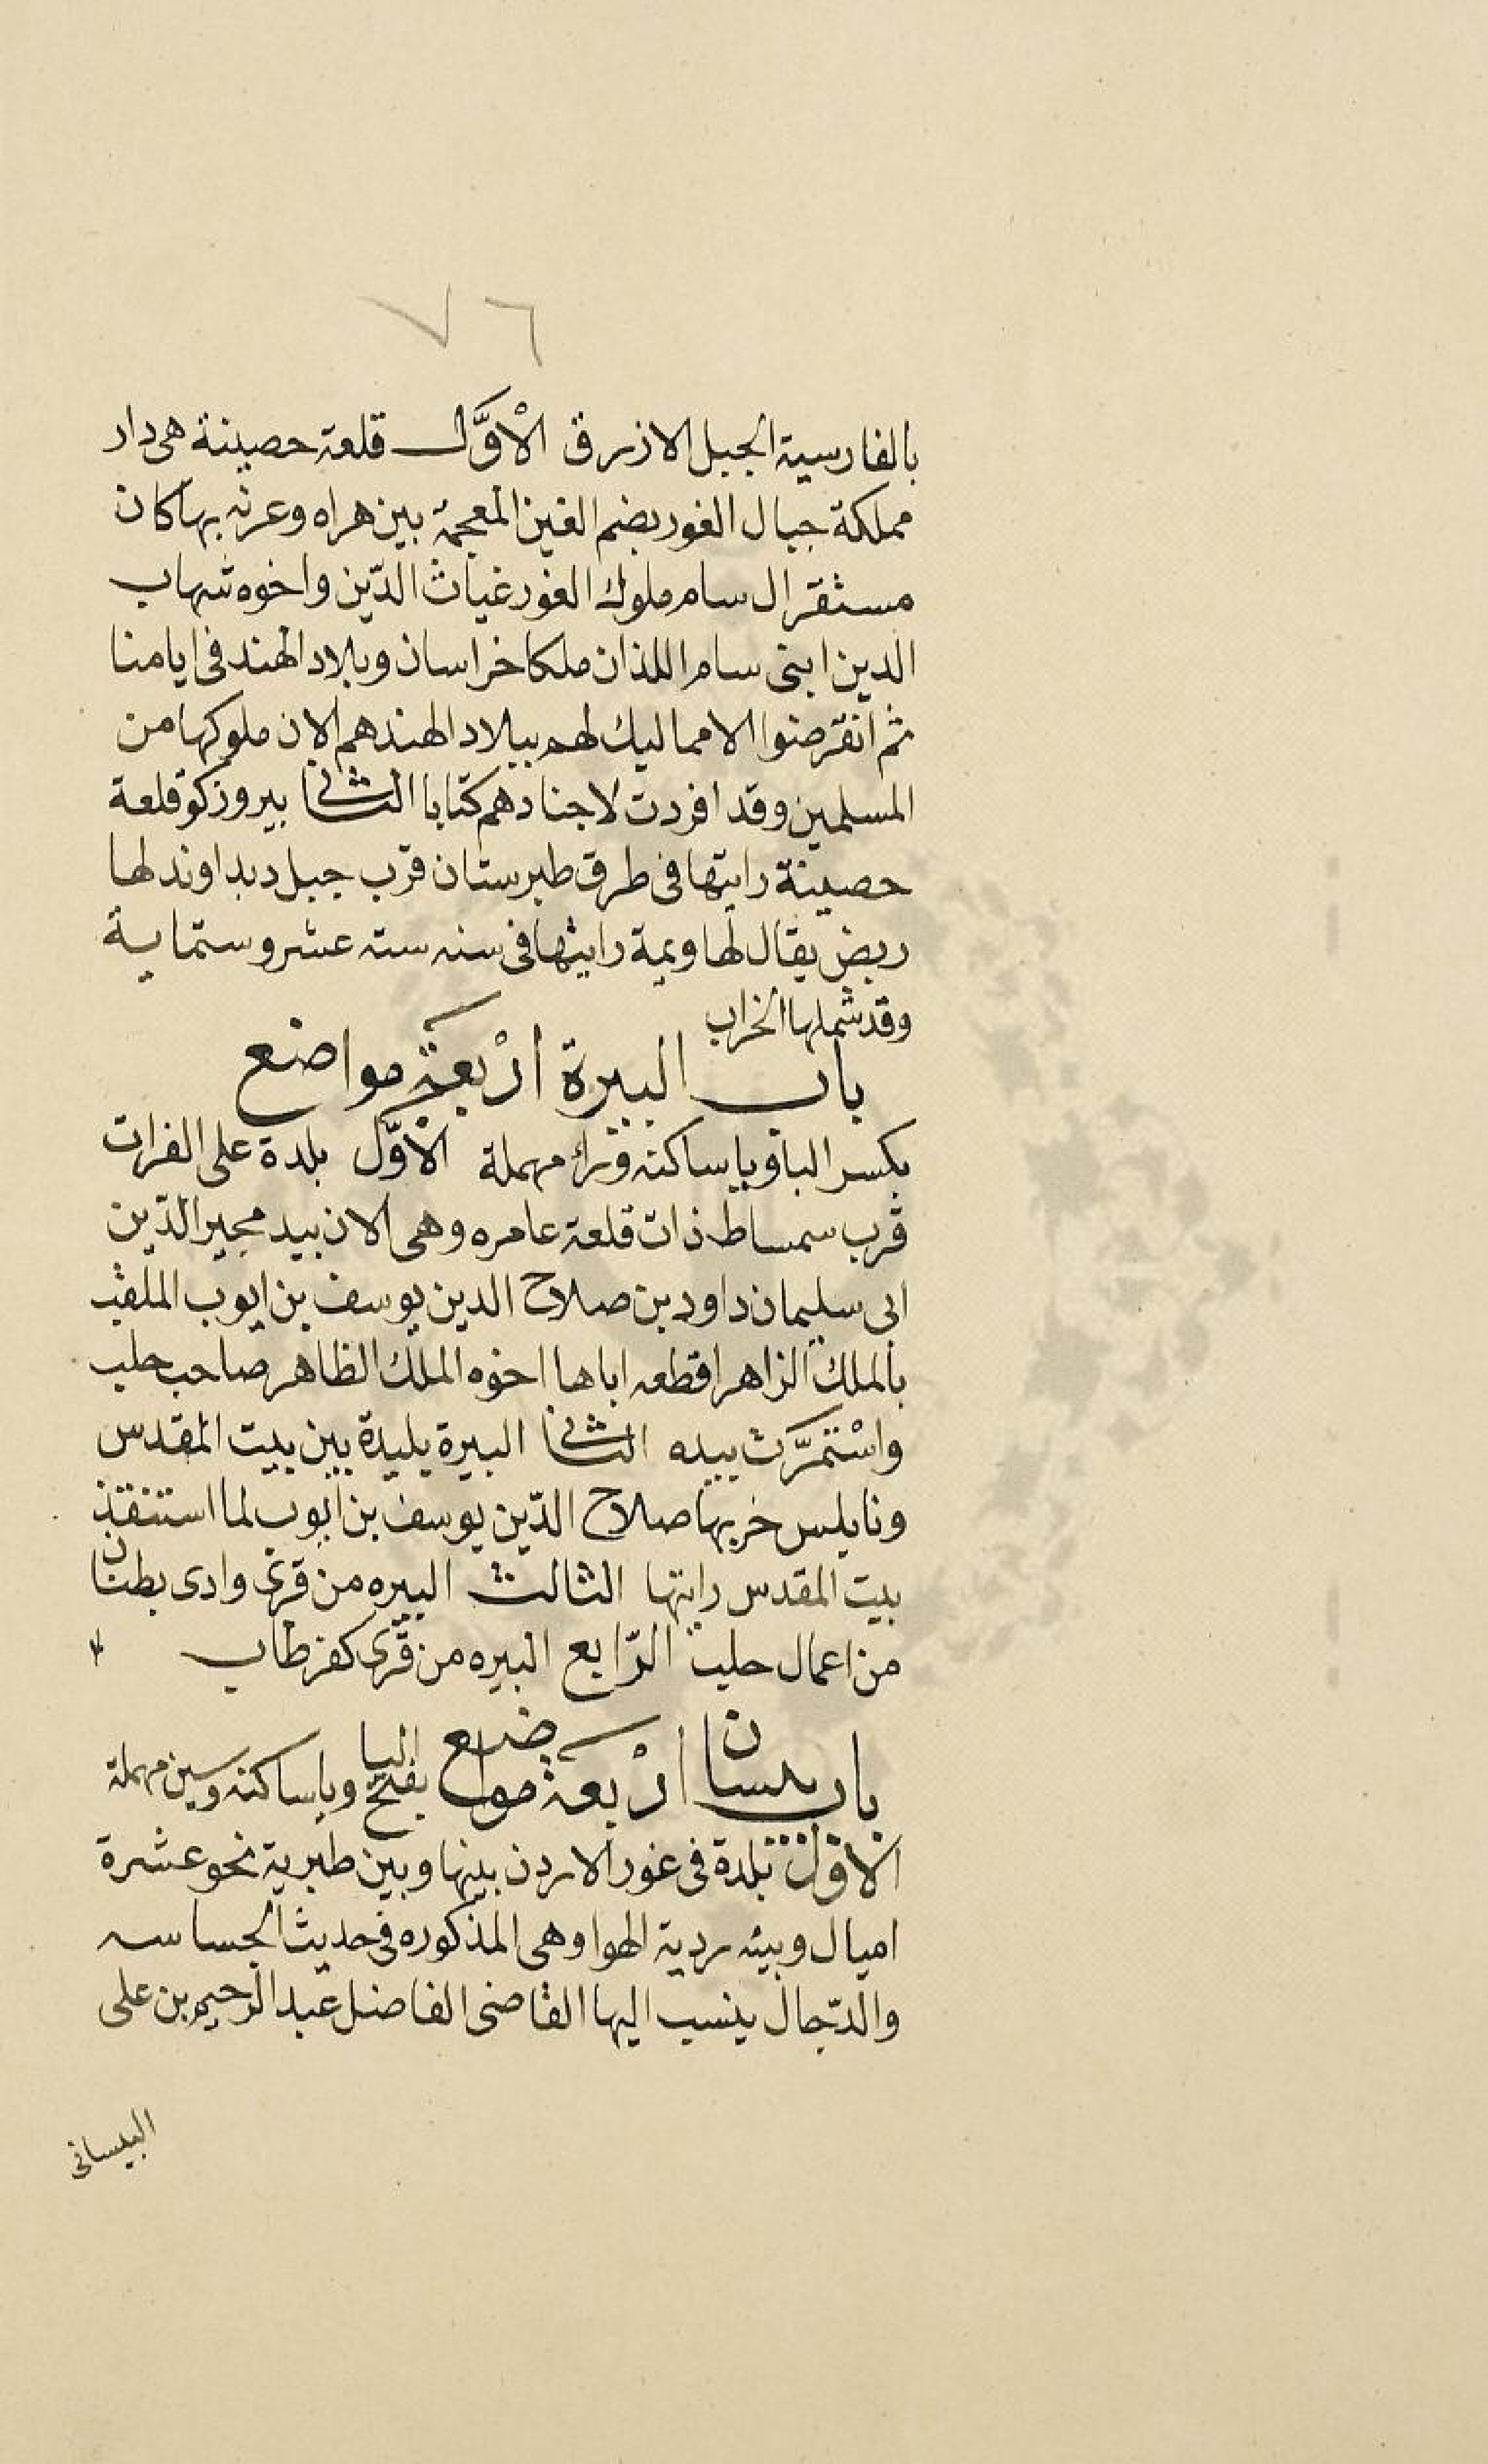 ٧٦
بالفارسية الجبل الازرق الْاوَّل قلعة حصينة هى دار
مملكة جبال الغور بضم الغين المعجمة بين هراه وغزنه بها كان
مستقر ال سام ملوك الغور غياث الدّين واخوه شهاب
الدين ابنى سام اللذان ملكا خراسان وبلاد الهند فى ايامنا
ثم انقرضوا الا مماليك لهم ببلاد الهند هم الان ملوكها من
المسلمين وقد افردت لاجنادهم كتابا الثانى بيروزكو قلعة
حصينة رايتها فى طرق طبرستان قرب جبل دبداوند لها
ربض يقال لها ويمة رايتها فى سنه سته عشر وستماية
وقد شملها الخراب
باب البيرة ارْبعة مواضع
بكسر البا ويا ساكنه وراء مهملة الْاوّل بلدة على الفرات
قرب سمساط ذات قلعة عامره وهى الان بيد مجير الدّين
ابى سليمان داود بن صلاح الدين يوسف بن ايوب الملقب
بالملك الزاهر اقطعه اباها اخوه الملك الظاهر صاحب حلب
واسْتمرَّت بيده الثانى البيرة بليدة بين بيت المقدس
ونابلس خربها صلاح الدّين يوسف بن ايوب لما استنقذ
بيت المقدس رايتها الثالث البيره من قرى وادى بطنان
من اعمال حلب الرّابع البيره من قرى كفرطاب
باب بيسان ارْبعة مواضع بفتح البا ويا ساكنه وسين مهملة
الاوّل بلدة فى غور الاردن بينها وبين طبرية نحو عشرة
اميال وبيئه ردية الهوا وهى المذكوره فى حديث الجساسه
والدّجال ينسب اليها القاضى الفاضل عبد الرحيم بن على
البيسانى